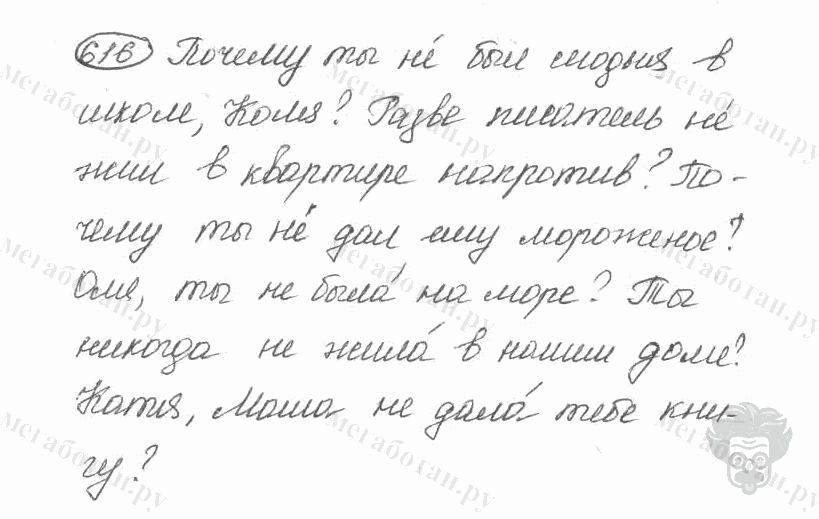 616 Почему ты не́ был сегодня в
школе, Коля? Разве писатель не́
жил в квартире напротив? По-
чему ты не́ дал ему мороженое?
Оля, ты не была́ на море? Ты
никогда не жила́ в нашем доме?
Катя, Маша не дала́ тебе кни-
гу?
Мегаботан.ру